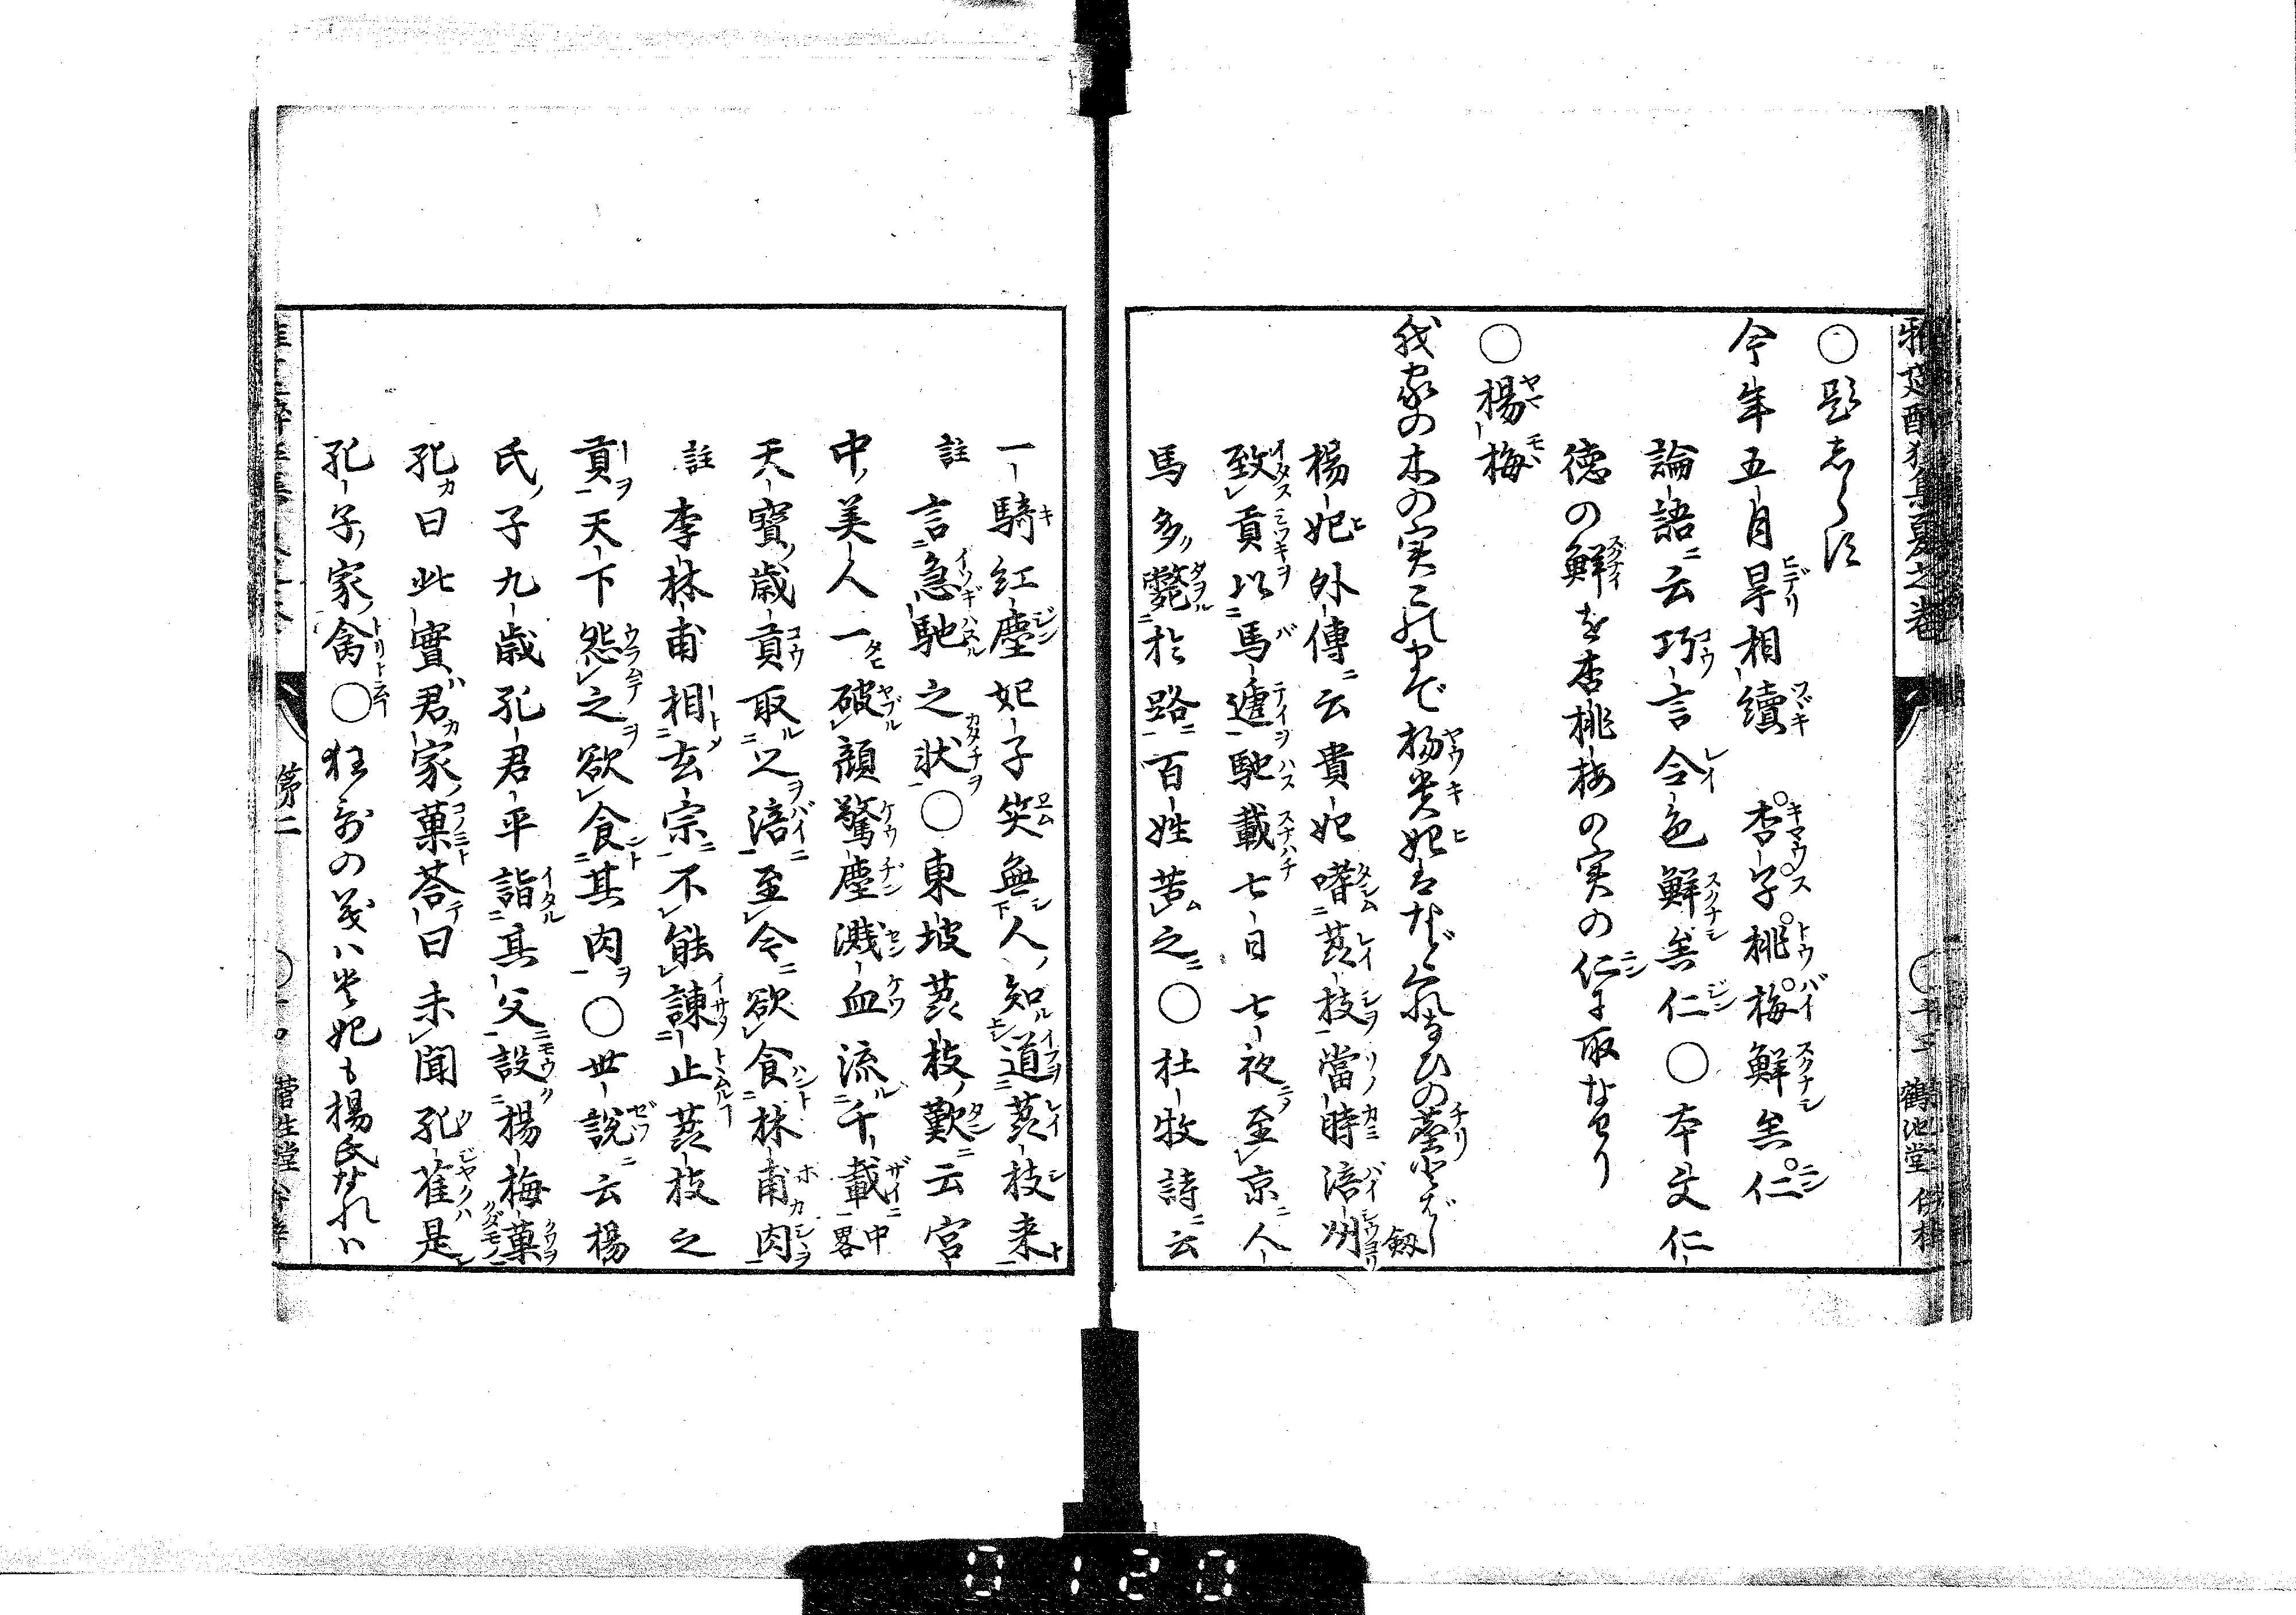 雅筵酔狂集夏之巻
十三 鶴池堂
○題しらす
今年五月旱相續 杏字桃梅鮮矣仁
論語ニ云巧言令色鮮矣仁○本文仁
徳の鮮を杏桃梅の実の仁に取なせり
○楊梅
楊妃外傳ニ云貴妃嗜茘枝當時涪州
致貢以馬遞馳載七日七夜至京人
馬多斃於路百姓苦之○杜牧詩ニ云
一騎紅塵妃子笑無人知道茘枝来
註 言急馳之状○東坡茘枝歎ニ云宮
中美人一破顔驚塵濺血流千載 中畧
天寶歳貢取之涪至今欲食林甫肉
註 李林甫相玄宗不能諌止茘枝之
貢天下怨之欲食其肉○世説ニ云楊
氏子九歳孔君平詣其父設楊梅菓
孔曰此實君家菓荅曰未聞孔雀是
孔子家禽○狂哥の義ハ貴妃も楊氏なれハ
第二
0120